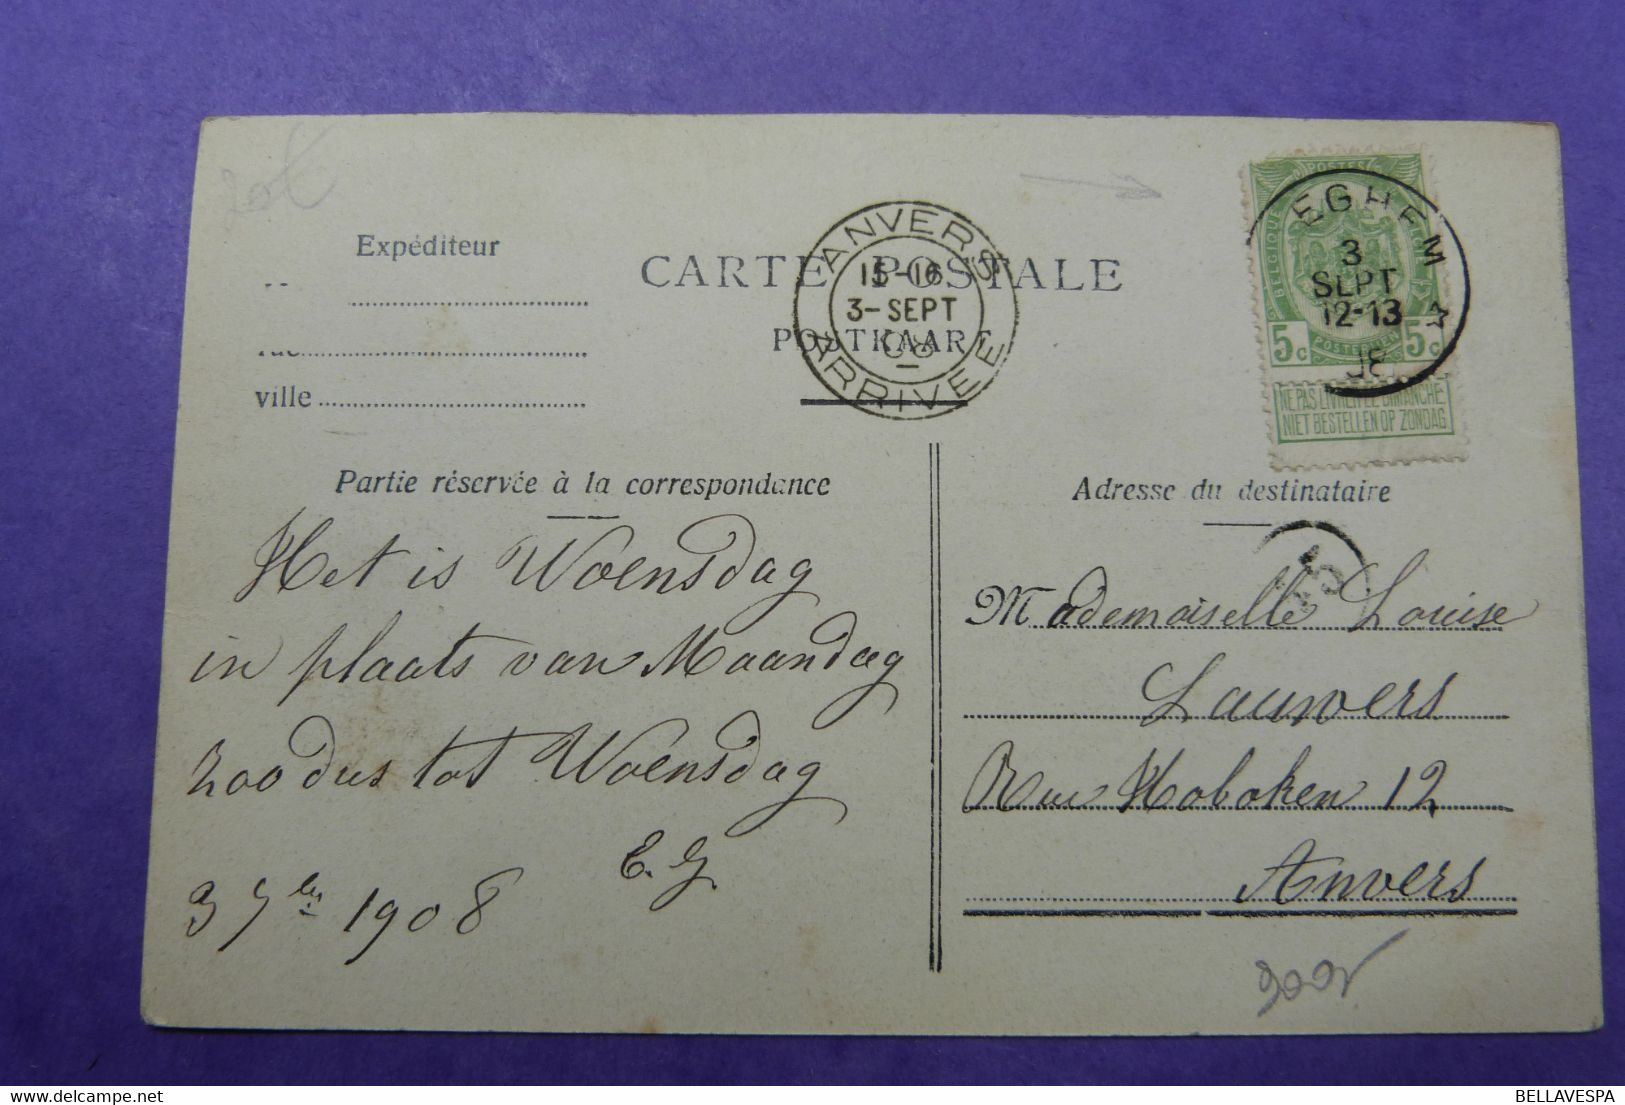 Expéditeur
ville
CARTE POSTALE
POSTKAART
ANVERS
15-16
3-SEPT
08
ARRIVEE
POSTES
BELGIQUE
5c 5c
POSTERIJEN
NE PAS LIVRER LE DIMANCHE
NIET BESTELLEN OP ZONDAG
EGHEM
3
SEPT
12-13
Partie réservée à la correspondance
Het is Woensdag
in plaats van Maandag
zoo dus tot Woensdag
E. G.
3 7bre 1908
Adresse du destinataire
Mademoiselle Louise
Lauwers
Rue Hoboken 12
Anvers
BELLAVESPA